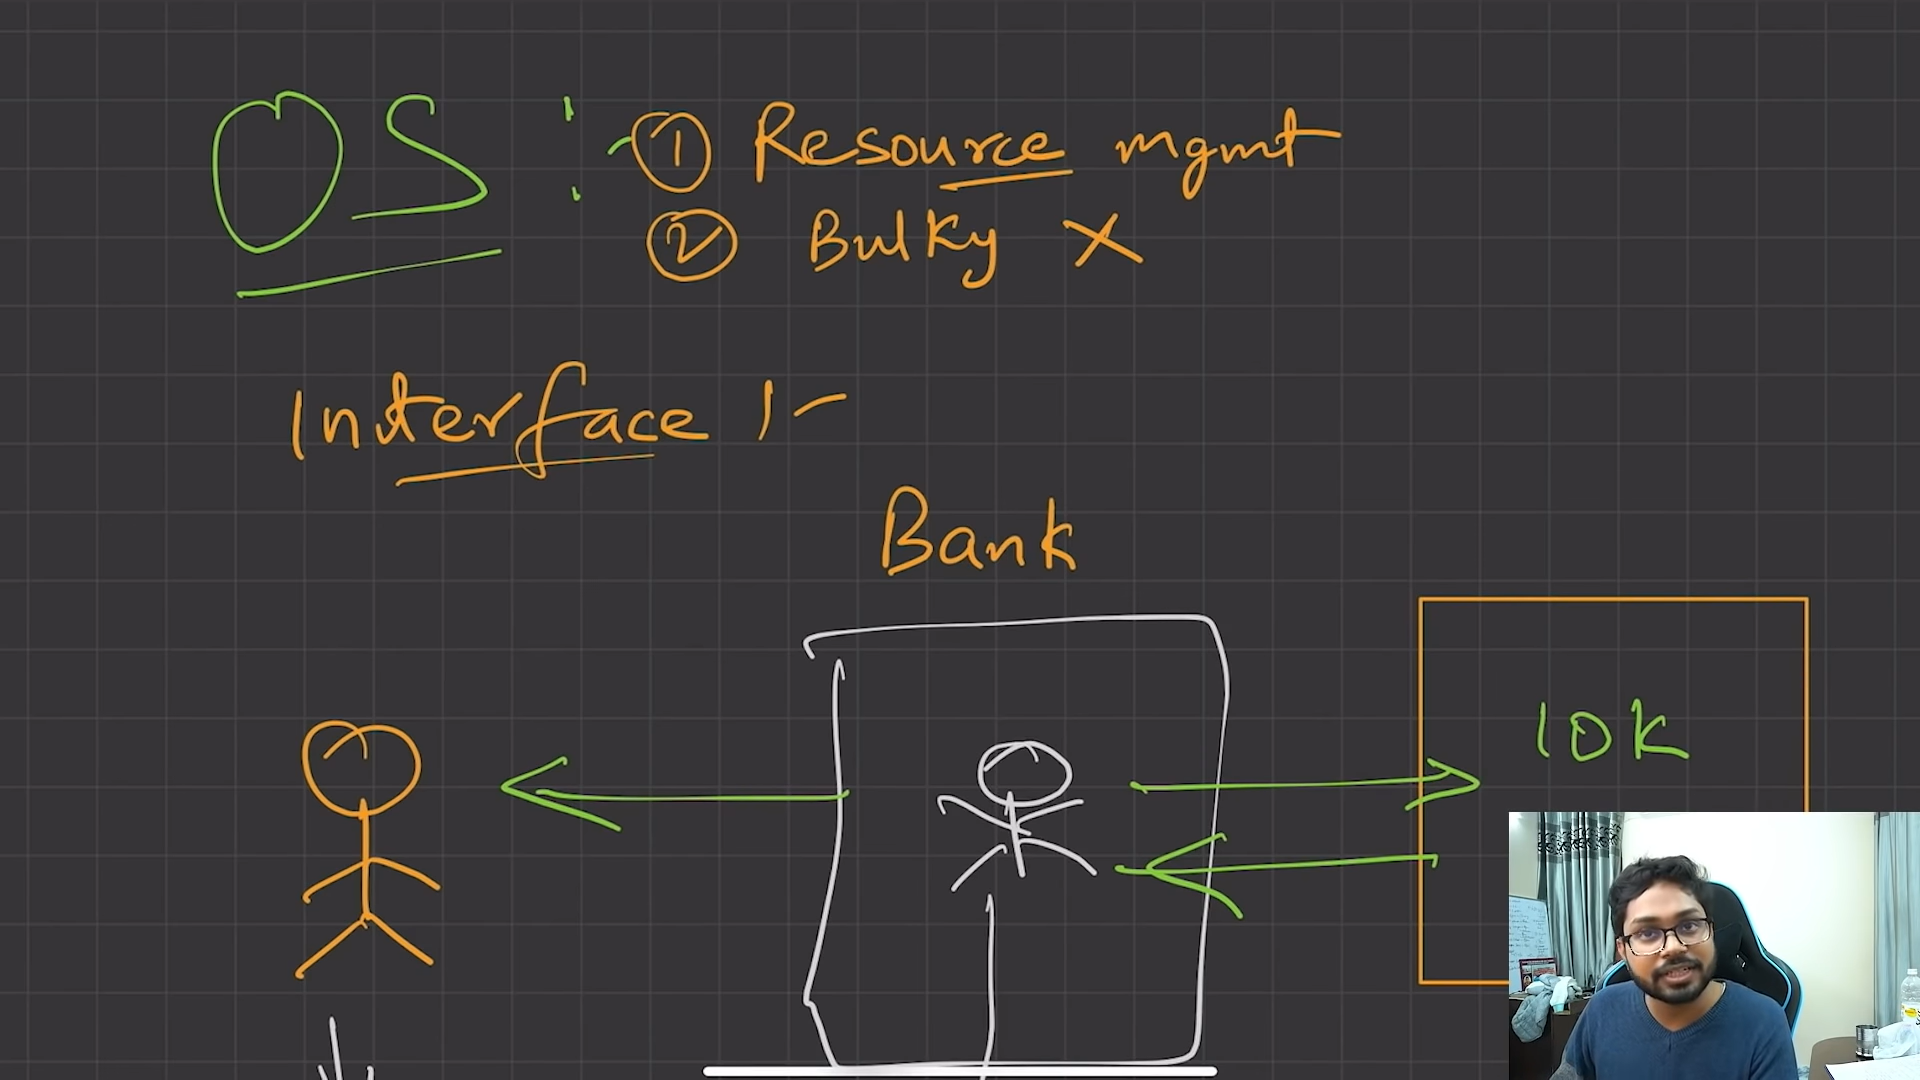 OS :- ① Resource mgmt
② Bulky X
Interface :-
Bank
10K